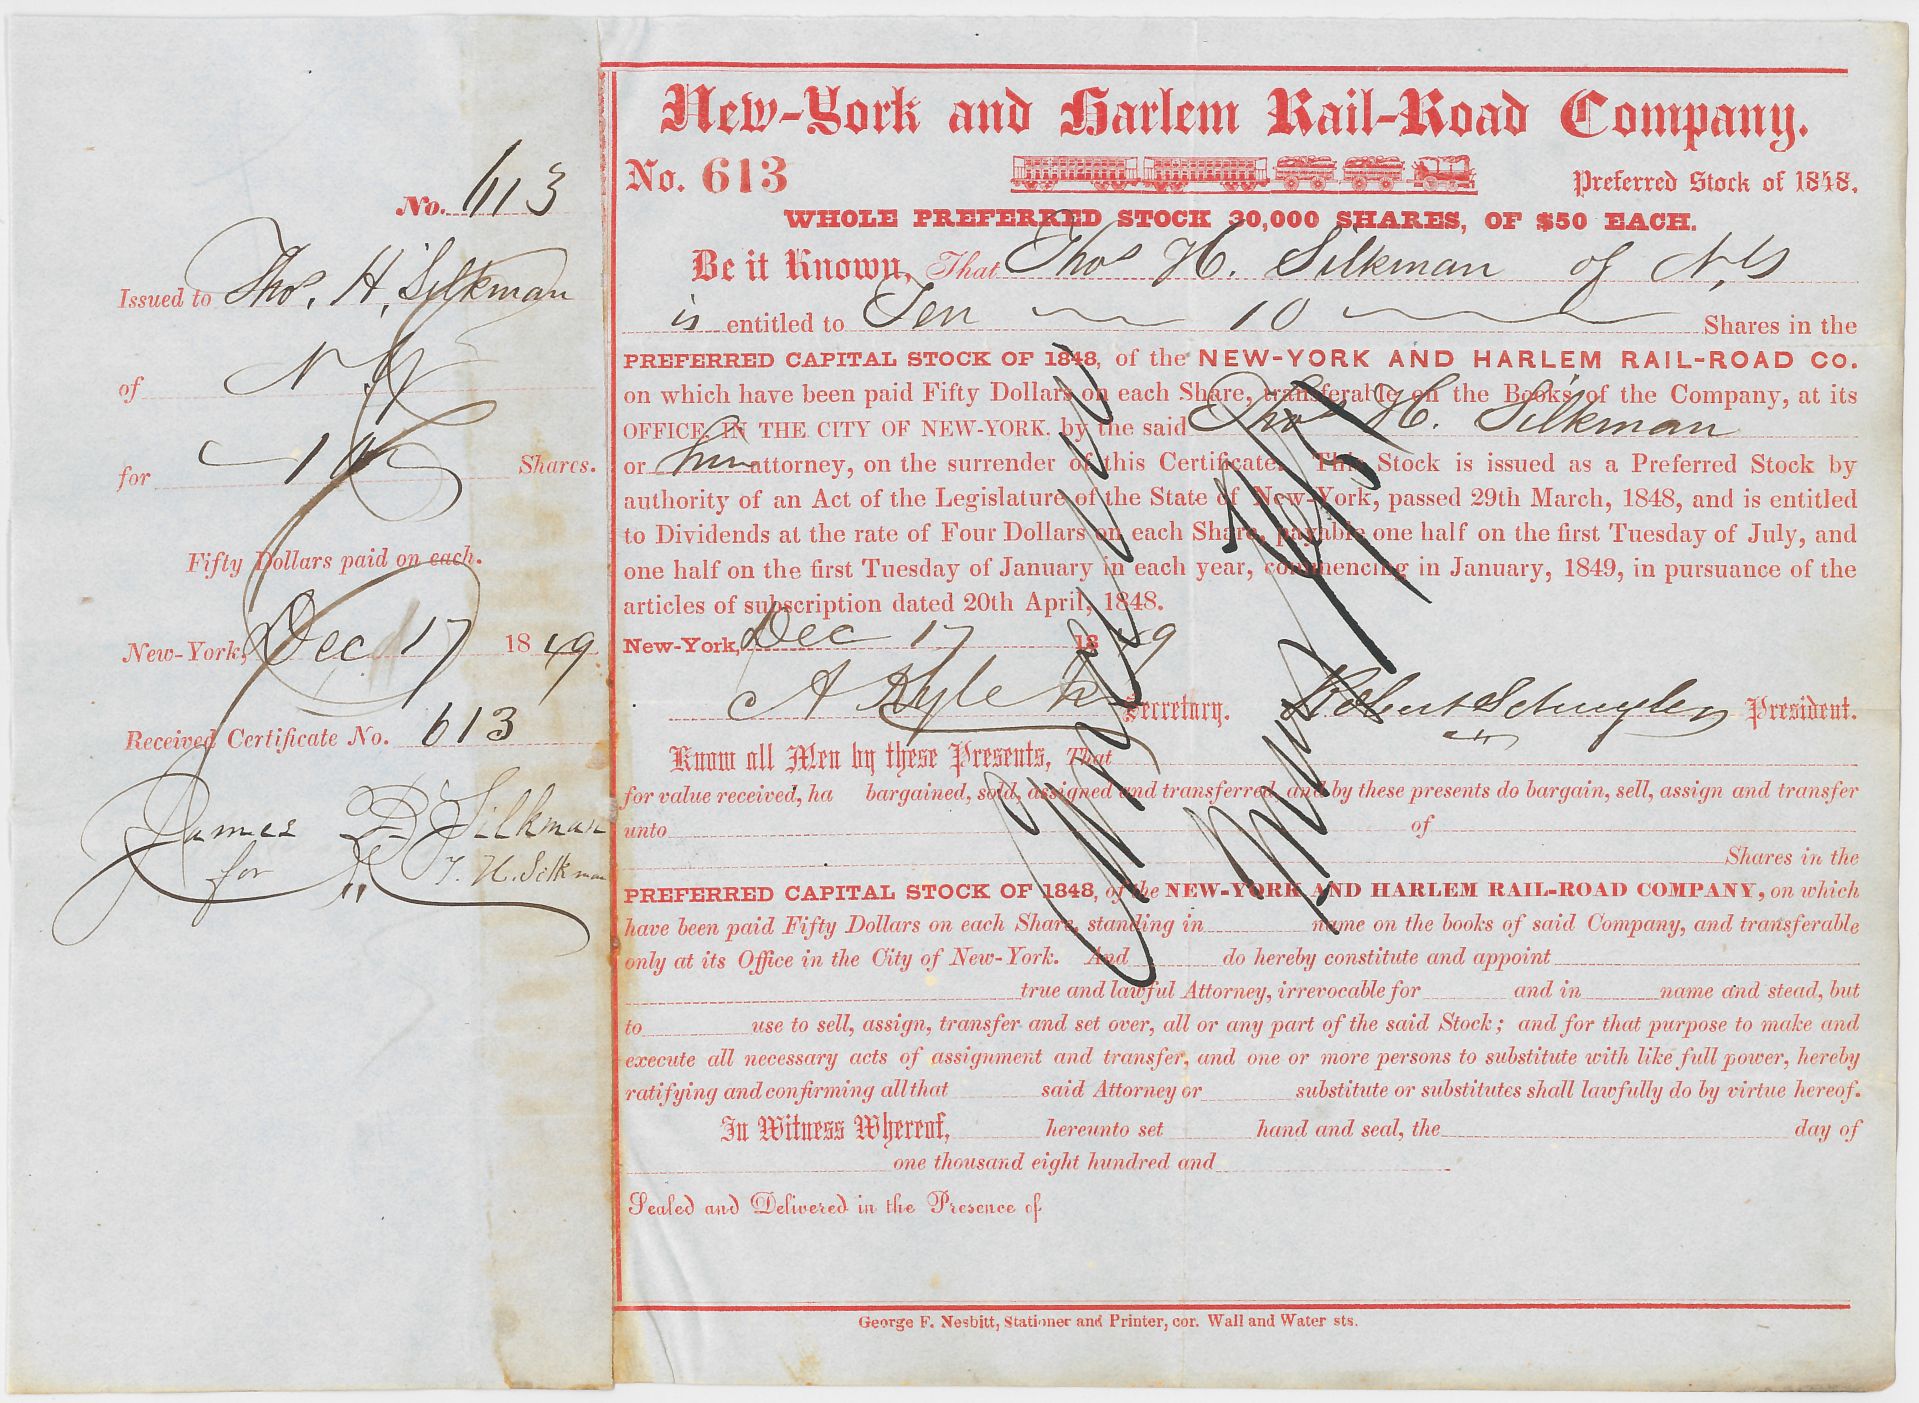 No. 613
Issued to Thos. H. Silkman
of N Y
for 10 Shares.
Fifty Dollars paid on each.
New-York, Dec 17 1849
Received Certificate No. 613
James D Silkman
for T. H. Silkman
New-York and Harlem Rail-Road Company.
No. 613
Preferred Stock of 1848.
WHOLE PREFERRED STOCK 30,000 SHARES, OF $50 EACH.
Be it Known, That Thos H. Silkman of N.Y
is entitled to Ten 10 Shares in the
PREFERRED CAPITAL STOCK OF 1848, of the NEW-YORK AND HARLEM RAIL-ROAD CO.
on which have been paid Fifty Dollars on each Share, transferable on the Books of the Company, at its
OFFICE, IN THE CITY OF NEW-YORK, by the said Thos H. Silkman
or his attorney, on the surrender of this Certificate. This Stock is issued as a Preferred Stock by
authority of an Act of the Legislature of the State of New-York, passed 29th March, 1848, and is entitled
to Dividends at the rate of Four Dollars on each Share, payable one half on the first Tuesday of July, and
one half on the first Tuesday of January in each year, commencing in January, 1849, in pursuance of the
articles of subscription dated 20th April, 1848.
New-York, Dec 17 1849
A Kyle Jr Secretary. Robert Schuyler President.
Know all Men by these Presents, That
for value received, ha bargained, sold, assigned and transferred, and by these presents do bargain, sell, assign and transfer
unto of
Shares in the
PREFERRED CAPITAL STOCK OF 1848, of the NEW-YORK AND HARLEM RAIL-ROAD COMPANY, on which
have been paid Fifty Dollars on each Share, standing in name on the books of said Company, and transferable
only at its Office in the City of New-York. And do hereby constitute and appoint
true and lawful Attorney, irrevocable for and in name and stead, but
to use to sell, assign, transfer and set over, all or any part of the said Stock; and for that purpose to make and
execute all necessary acts of assignment and transfer, and one or more persons to substitute with like full power, hereby
ratifying and confirming all that said Attorney or substitute or substitutes shall lawfully do by virtue hereof.
In Witness Whereof, hereunto set hand and seal, the day of
one thousand eight hundred and
Sealed and Delivered in the Presence of
George F. Nesbitt, Stationer and Printer, cor. Wall and Water sts.